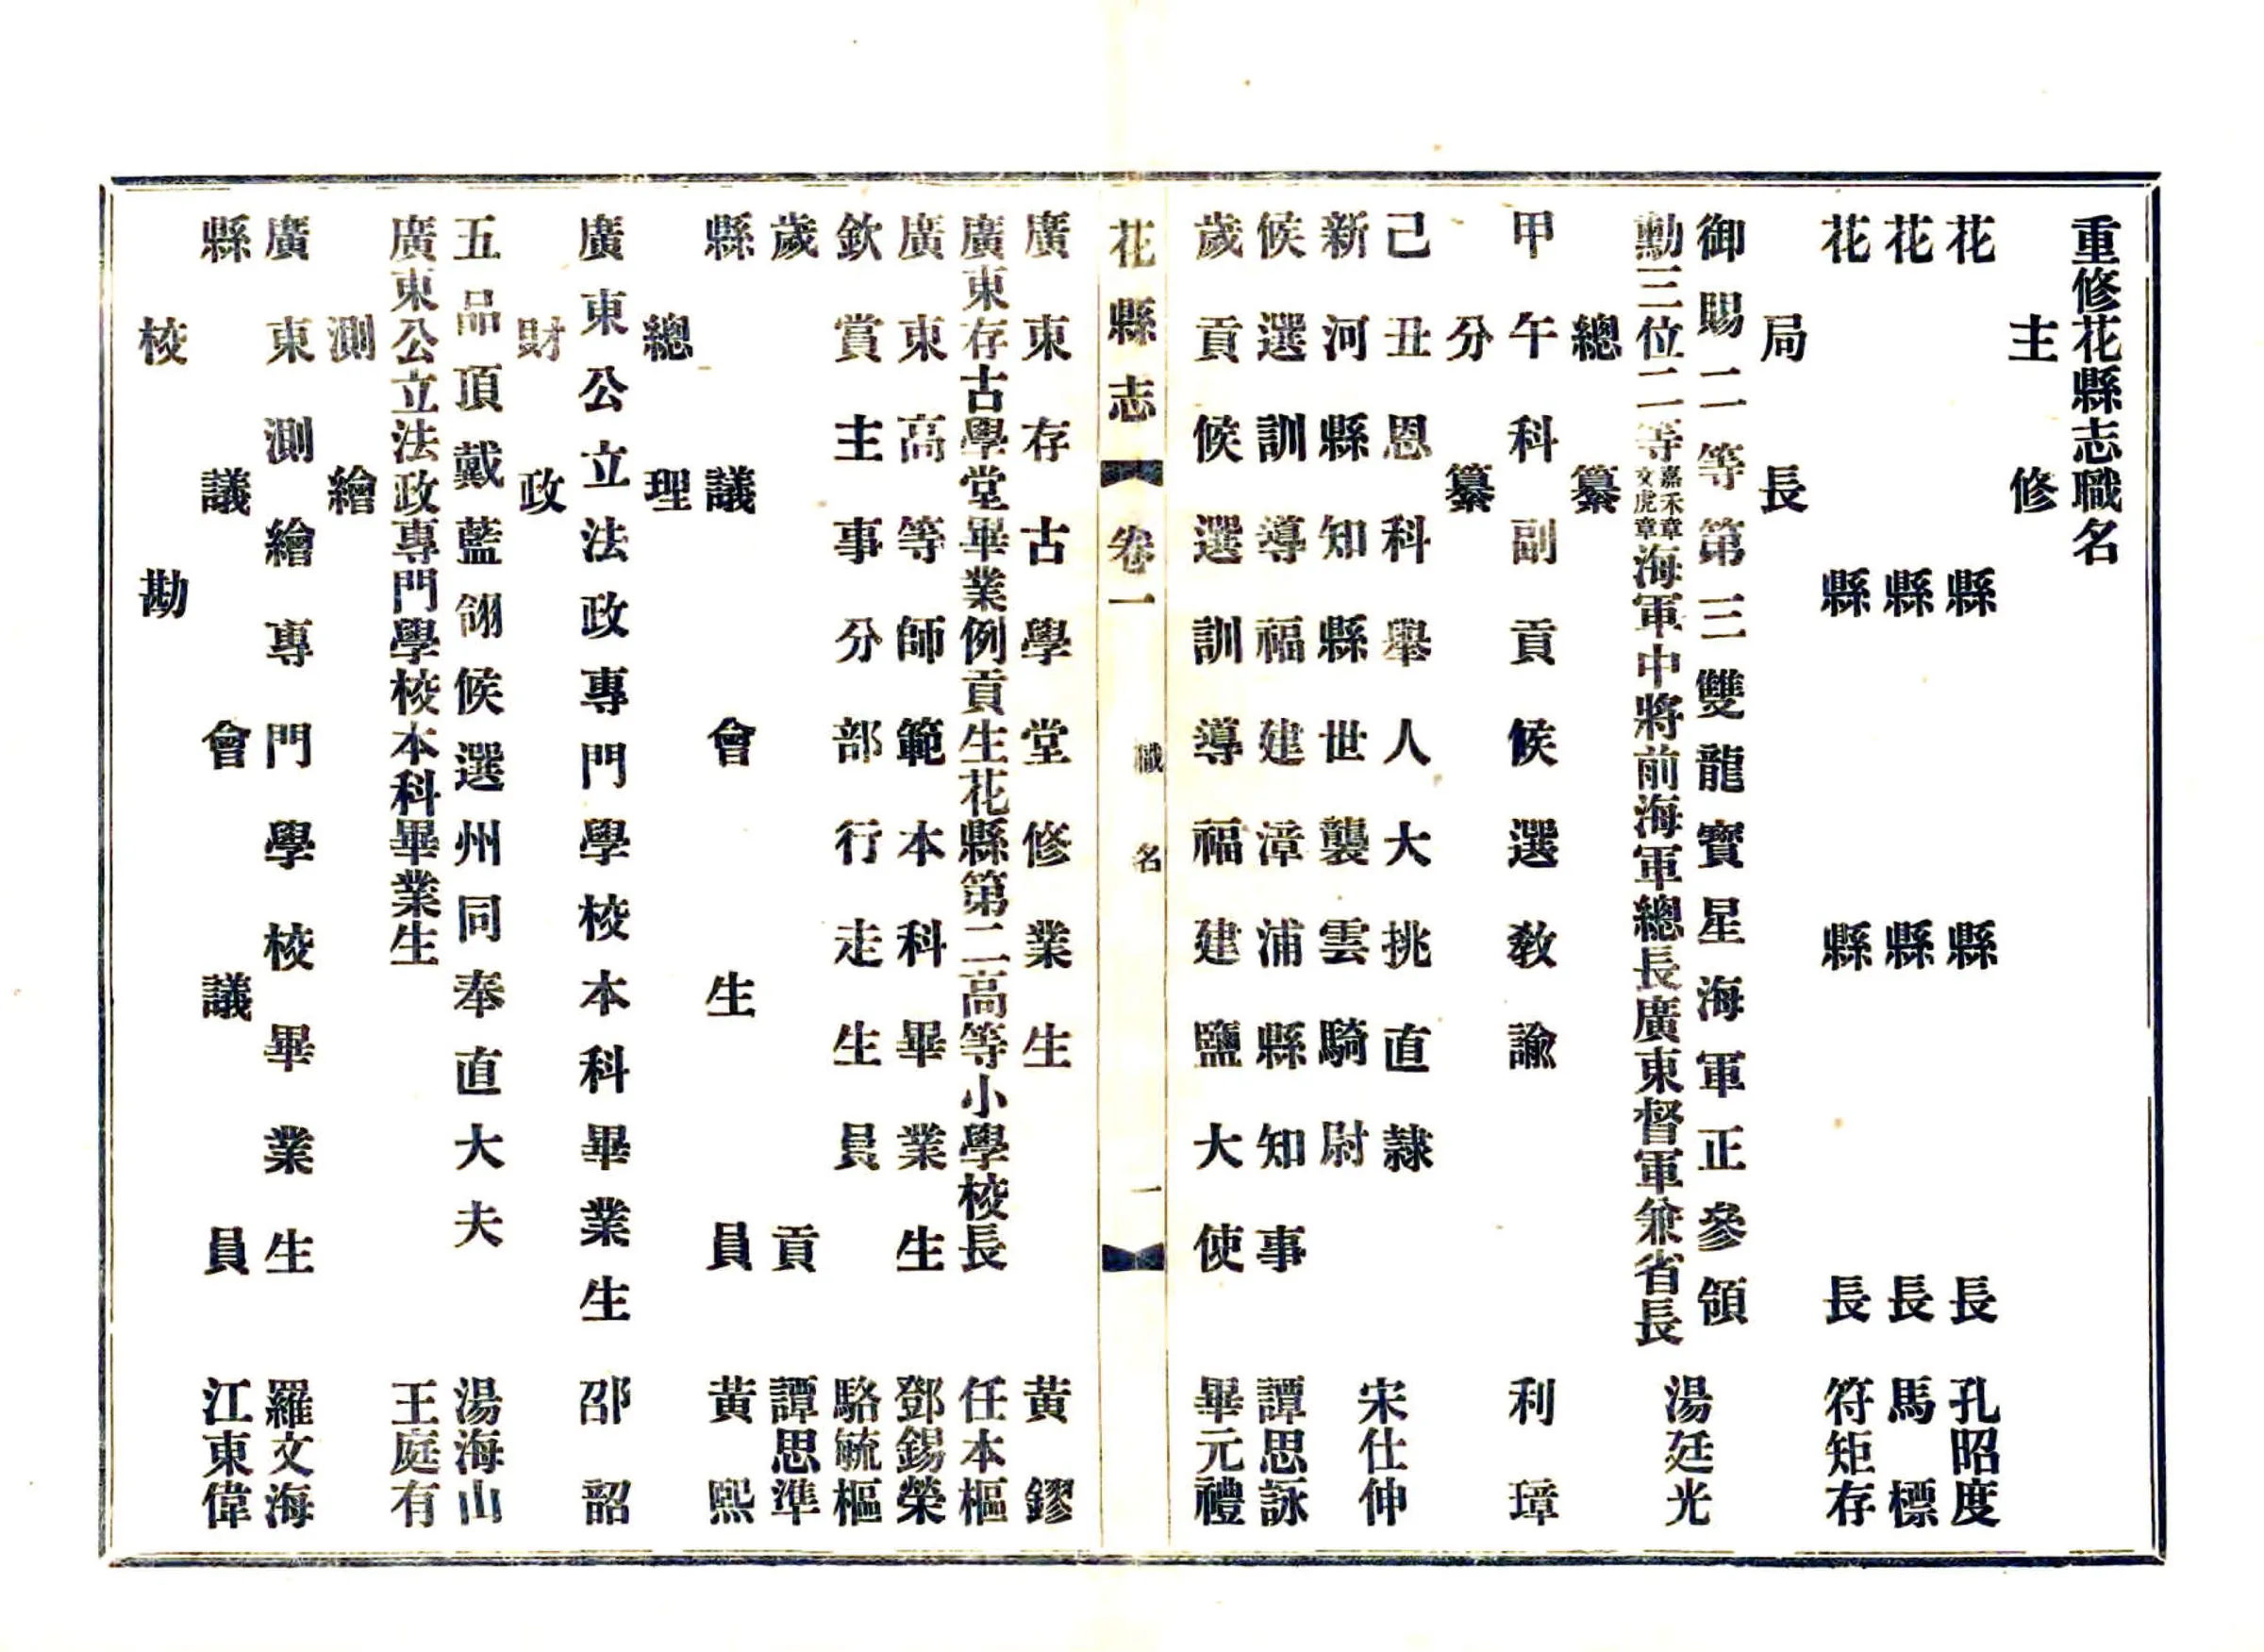 重修花縣志職名
主修
花縣縣長孔昭度
花縣縣長馬標
花縣縣長符矩存
局長
御賜二等第三雙龍寶星海軍正參領
勳三位二等嘉禾章文虎章海軍中將前海軍總長廣東督軍兼省長
湯廷光
總纂
甲午科副貢候選教諭利璋
分纂
己丑恩科舉人大挑直隸
新河縣知縣世襲雲騎尉
宋仕伸
候選訓導福建漳浦縣知事譚思詠
歲貢候選訓導福建鹽大使畢元禮
花縣志卷一
職名
一
廣東存古學堂修業生黃鏐
廣東存古學堂畢業例貢生花縣第二高等小學校長任本樞
廣東高等師範本科畢業生鄧錫榮
欽賞主事分部行走生員駱毓樞
歲貢譚思準
縣議會生員黃熙
總理
廣東公立法政專門學校本科畢業生邵韶
財政
五品頂戴藍翎候選州同奉直大夫湯海山
廣東公立法政專門學校本科畢業生王庭有
測繪
廣東測繪專門學校畢業生羅文海
縣議會議員江東偉
校勘